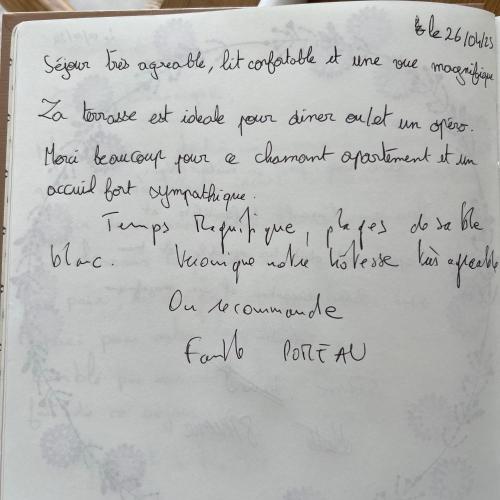 le 26/04/25
Séjour très agreable, lit confortable et une vue magnifique
La terrasse est ideale pour diner ou/et un apéro.
Merci beaucoup pour ce charmant apartement et un
accueil fort sympathique.
Temps Magnifique, plages de sable
blanc. Veronique notre hôtesse très agreable
On recommande
Famille POTEAU